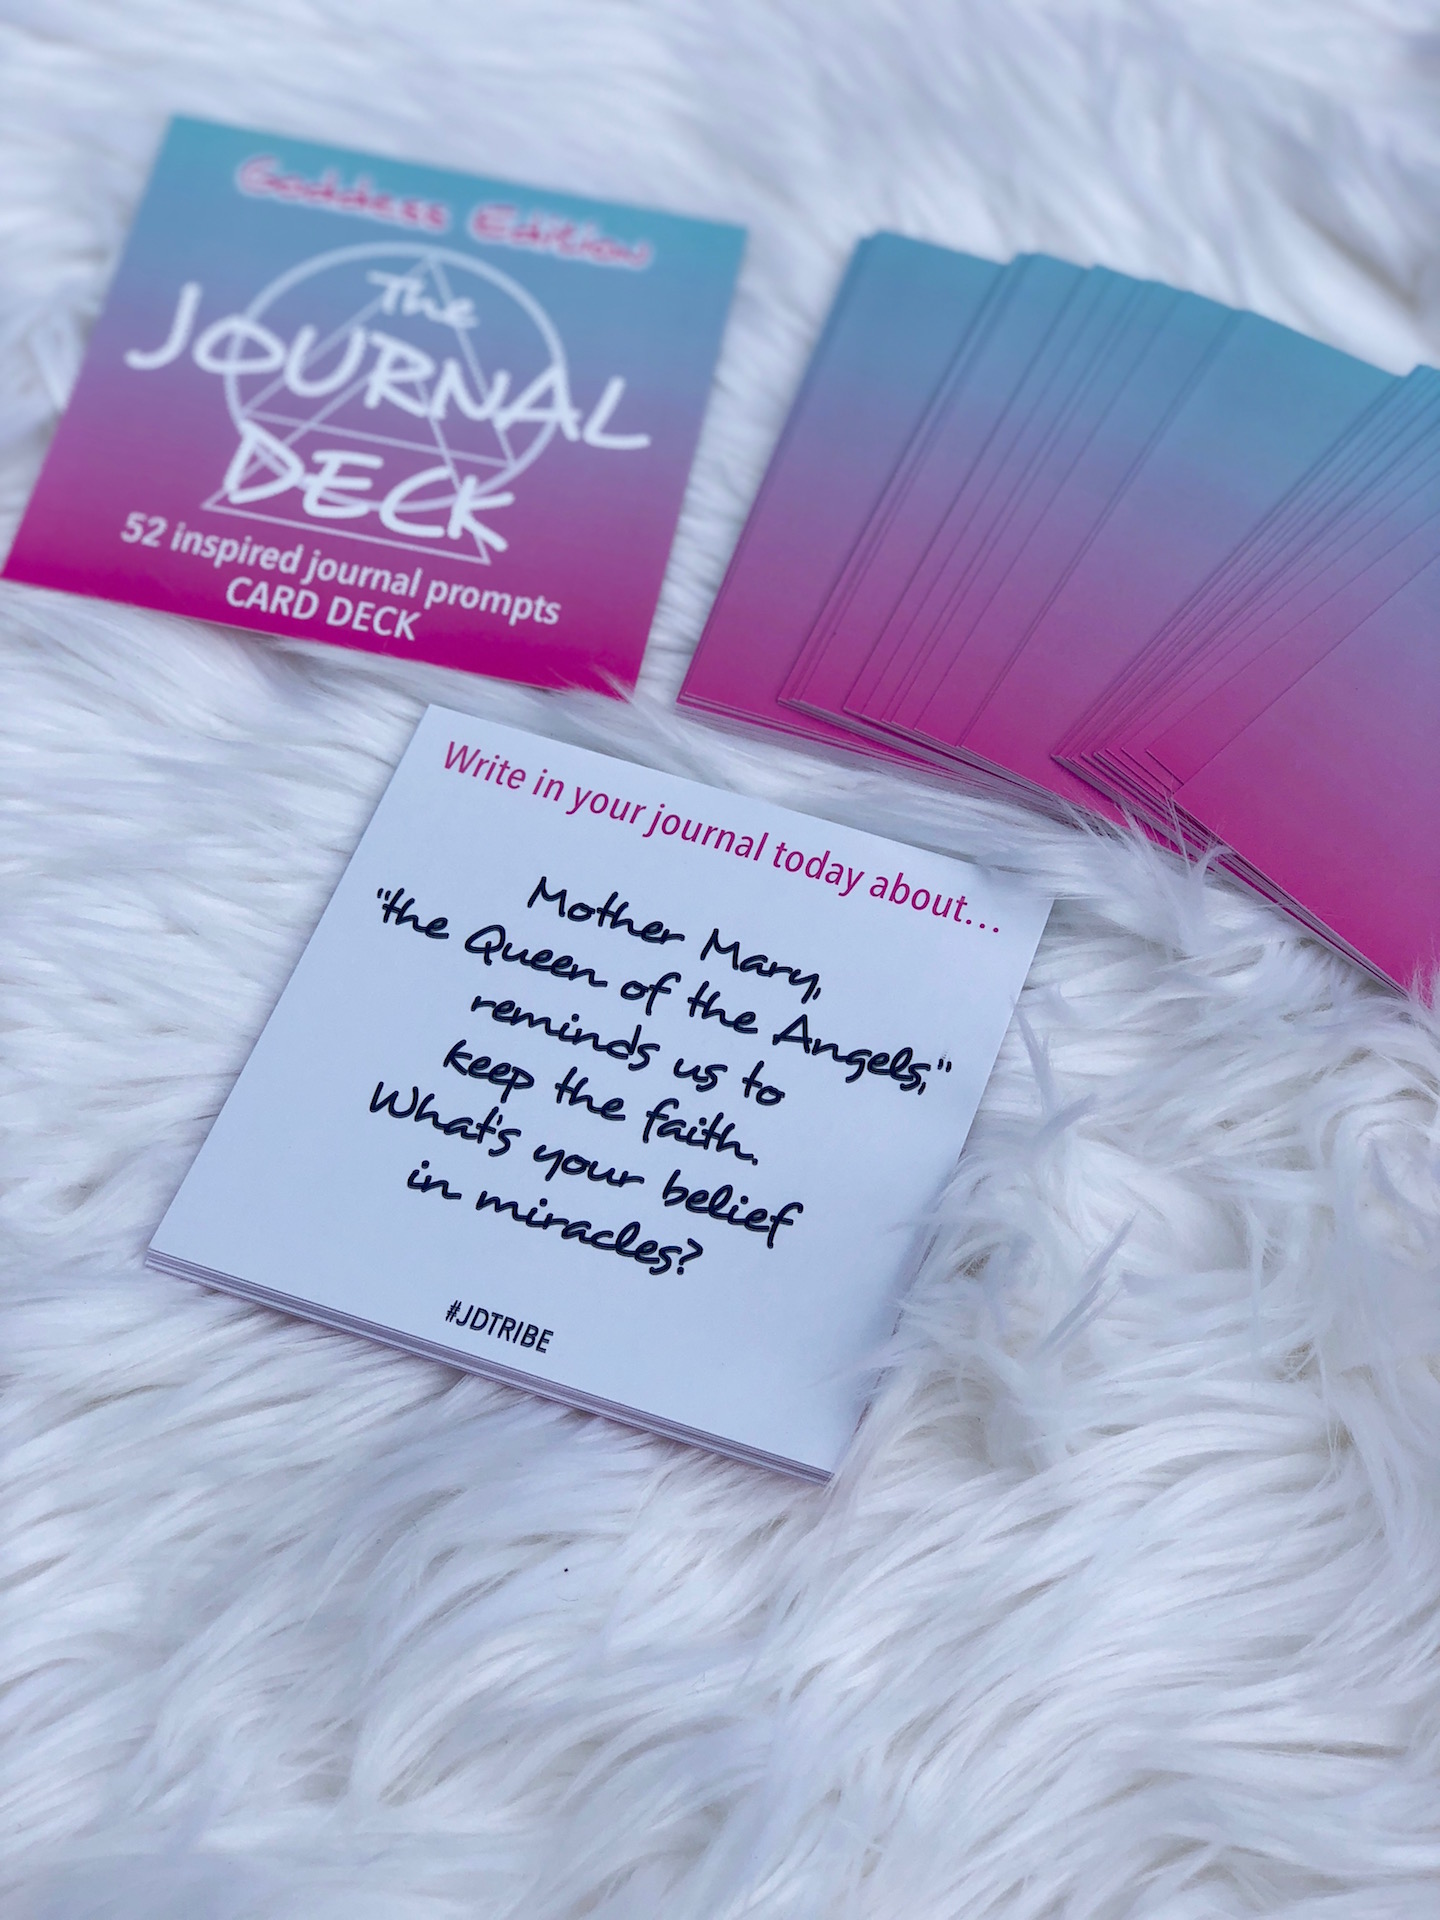 Goddess Edition
The
JOURNAL
DECK
52 inspired journal prompts
CARD DECK
Write in your journal today about...
Mother Mary,
"the Queen of the Angels,"
reminds us to
keep the faith.
What's your belief
in miracles?
#JDTRIBE